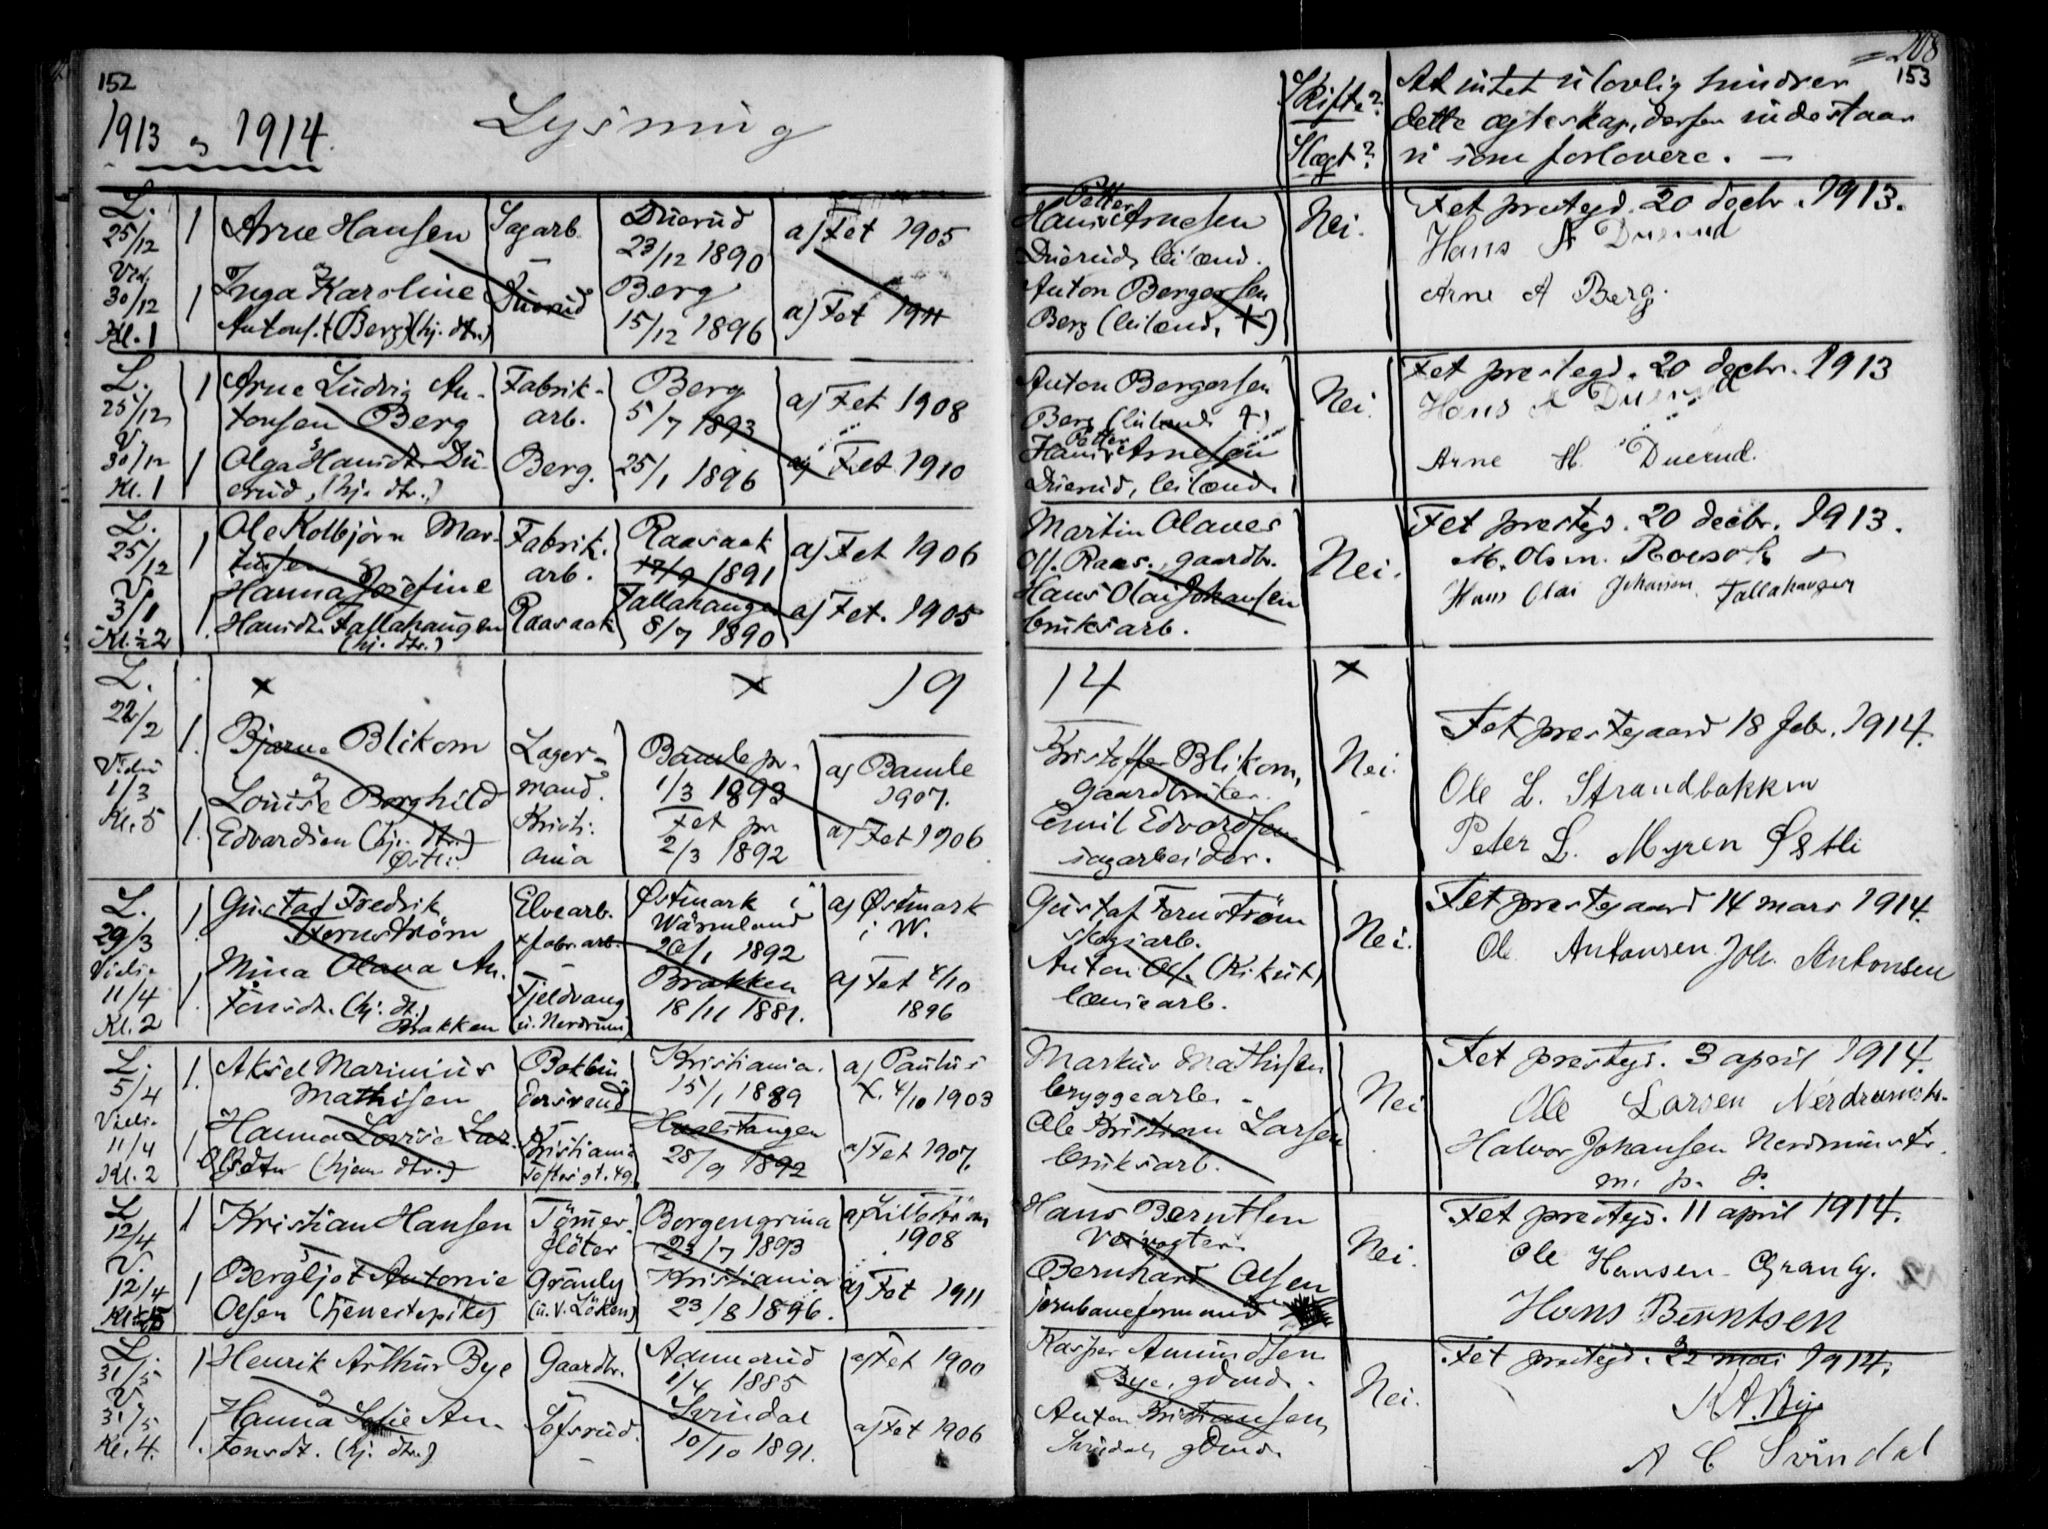 152
1913 og 1914.
Lysning
L.
25/12
Vid.
30/12
Kl. 1
1 Arne Hansen
Sagarb.
Duerud
23/12 1890
a) Fet 1905
1 Inga Karoline
Antons. (Berg) (hj. dtr.)
Duerud
Berg
15/12 1896
a) Fet 1911
L.
25/12
V.
30/12
Kl. 1
1 Arne Ludvig An-
tonsen Berg
Fabrik-
arb.
Berg
5/7 1893
a) Fet 1908
1 Olga Hansdtr. Du-
erud, (hj. dtr.)
Berg.
25/1 1896
a) Fet 1910
L.
25/12
V.
3/1
Kl. ½2
1 Ole Kolbjørn Mar-
tinsen
Fabrik.
arb.
Raasaak
17/9 1891
a) Fet 1906
1. Hanna Josefine
Hansdtr. Fallahaugen
(hj. dtr.)
Raasaak
Fallahaugen
8/7 1890
a) Fet. 1905
x x 19
L.
22/2
Viedn
1/3
Kl. 5
1. Bjarne Blikom
Lager-
mand.
Bamle pr.
1/3 1893
a) Bamle
1907.
1. Louise Borghild
Edvardsen (hj. dtr.)
Østli
Kristi-
ania
Fet pr
2/3 1892
a) Fet 1906
L.
29/3
Viels.
11/4
Kl. 2
1. Gustaf Fredrik
Fernstrøm
Elvearb.
+ fabr. arb.
Østmark i
Wärmland
20/1 1892
a) Østmark
i W.
1. Mina Olava An-
tonsdt. (hj. dt.)
Brakken
Fjeldvang
(u. Nerdrum)
Brakken
18/11 1881.
a) Fet 4/10
1896
L.
5/4
Viels.
11/4
Kl. 2
1. Aksel Marinius
Mathisen
Kristiania.
15/1 1889
a) Paulus
K. 4/10 1903
1 Hanna Lovise Lar-
(hjem. dtr.)
Kristiania
28/9 1892
a) Fet 1907.
L
12/4
V.
12/4
1 Kristian Hansen
Tømmer-
fløter
Borgengrina
23/7 1893
a) Lillestrøm
1908
1 Bergljot Antonie
Olsen (tjenestepike)
Granly
(u. V. Löken)
Kristiania
23/8 1896.
a) Fet 1911
L.
31/5
V.
31/5
Kl. 4.
1 Henrik Arthur Bye
Gaardbr.
1/4 1885
a) Fet 1900
1. Hanna Sofie An-
tonsdt. (hj. dtr.)
Svindal
10/10 1891.
a) Fet 1906
208
153
Skifte?
Slægt?
At intet ulovlig hindrer
dette ægteskap, derfor indestaar
vi som forlovere. —
Petter
Hans Arnesen
Duerud, leilænd.
Anton Bergersen
Berg (leilænd. †)
Nei.
Fet prestegd. 20 decbr. 1913.
Hans A Duerud
Arne A Berg.
Anton Bergersen
Berg (leilænd. †)
Petter
Hans Arnesen
Duerud, leilænd.
Nei.
Fet prestegd. 20 decbr. 1913
Hans A Duerud
Arne H. Duerud.
Martin Olaves
Ols. Raas., gaardbr.
Hans Olai Johansen
bruksarb.
Nei.
Fet prestegd. 20 decbr. 1913.
M. Olsen. Roasok
Hans Olai Johansen Fallahaugen
14 x
Kristoffer Blikom,
gaardbruker.
Emil Edvardsen
sagarbeider.
Nei.
Fet prestegaard 18 febr. 1914.
Ole L. Strandbakken
Peter L. Myren Østli
Gustaf Fernstrøm
skogsarb.
Anton Ols. (Kikut)
lænsearb.
Nei.
Fet prestegaard 14 mars 1914.
Ole Antonsen Joh. Antonsen
Markus Mathisen
bryggearb.
Ole Kristian Larsen
bruksarb.
Nei
Fet prestegd. 3 april 1914.
Ole Larsen Nerdrumstr.
Halvor Johansen Nerdrumstr.
m. p. P.
Hans Berntsen
Veivogter.
Bernhard Olsen
jernbaneformand
Nei.
Fet prestegd. 11 april 1914.
Ole Hansen Granly.
Hans Berntsen
Kasper Amundsen
Bye, gdmd.
Anton Kristiansen
Svindal, gdmd.
Nei.
Fet prestegd. 22 mai 1914.
K A. Bye
A C Svindal